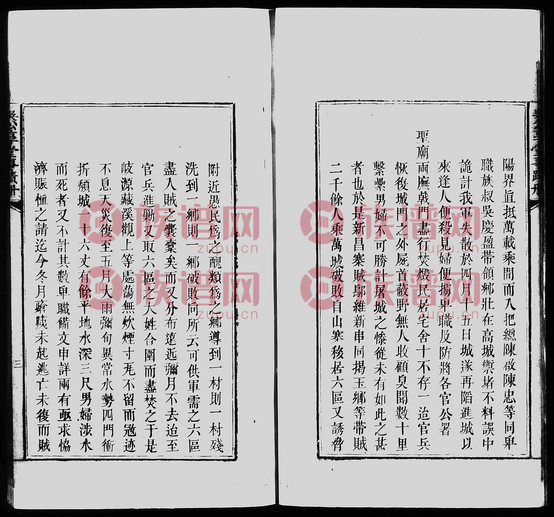 陽界直抵萬載乘間而入把總陳啟陳忠等同卑
職族叔吳慶盈帶領鄉壯在高城禦堵不料誤中
詭計我軍失散於四月十五日城遂再陷進城以
來逢人便殺見婦便擄卑職及防將各官公署
聖廟兩廡戟門盡行焚燬民居宅舍十不存一迨官兵
恢復城門之外屍首蔽野無人收顧臭聞數十里
繫纍男婦不可勝計屠城之慘從未有如此之甚
者於是新昌寨賊聯維新串同揚玉鄉等帶賊
二千餘人乘萬城被破自山寨移居六區又誘脅
附近愚民為之醜類為之鄉導到一村則一村殘
洗到一鄉則一鄉破敗向所云可供軍需之六區
盡入賊之囊橐矣而又外布遠近彌月不去迨至
官兵進勦又取六區之大姓合圍而盡焚之于是
岐源藏溪觀上等處蕩無炊煙寸瓦不留而寇迹
不息天災復至五月大雨彌旬異常水勢四門衝
折頹城一十六丈有餘平地水深三尺男婦漂水
而死者又不計其數卑職備文申詳兩有亟求恊
濟賑恤之請迄今冬月瘡痍未起逃亡未復而賊
三
族谱网
zupu.cn